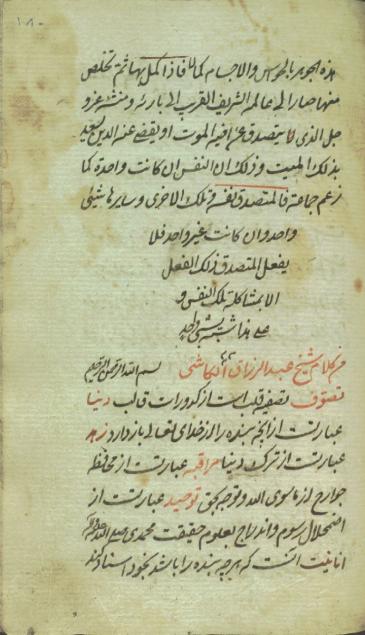 ١٠٨
هذه الجوهر بالحواس والاجسام كمالا فاذا كمل بها ثم تخلص
منها صار الى عالمه الشريف القرب الى بارئه ومنشئه عز و
جل الذى لا يتصدق عن اقيه الموت او يقضى عنه الدين يسعد
بذلك الميت وذلك ان النفس ان كانت واحدة كما
زعم جماعة فالمتصدق نفسه تلك الاخرى وساير ها شئ
واحد وان كانت غير واحد فلا
يفعل المتصدق ذلك الفعل
الا بمشاكلة تلك النفس و
على هذا شئ واحد
من كلام شيخ عبد الرزاق الكاشى بسم الله الرحمن الرحيم
تصوف تصفيه قلب است از كدورات قالب دنيا
عبارتست از آنچه بنده را از خداى تعالى باز دارد زهد
عبارتست از ترك دنيا مراقبه عبارتست از محافظه
جوارح از ماسوى الله وتوجه بحق توحيد عبارتست از
اضمحلال رسوم واندراج بعلوم حقيقت محمدى صلى الله عليه وآله
انانيت آنست كه هر چه بنده را باشد بخود اسناد كند